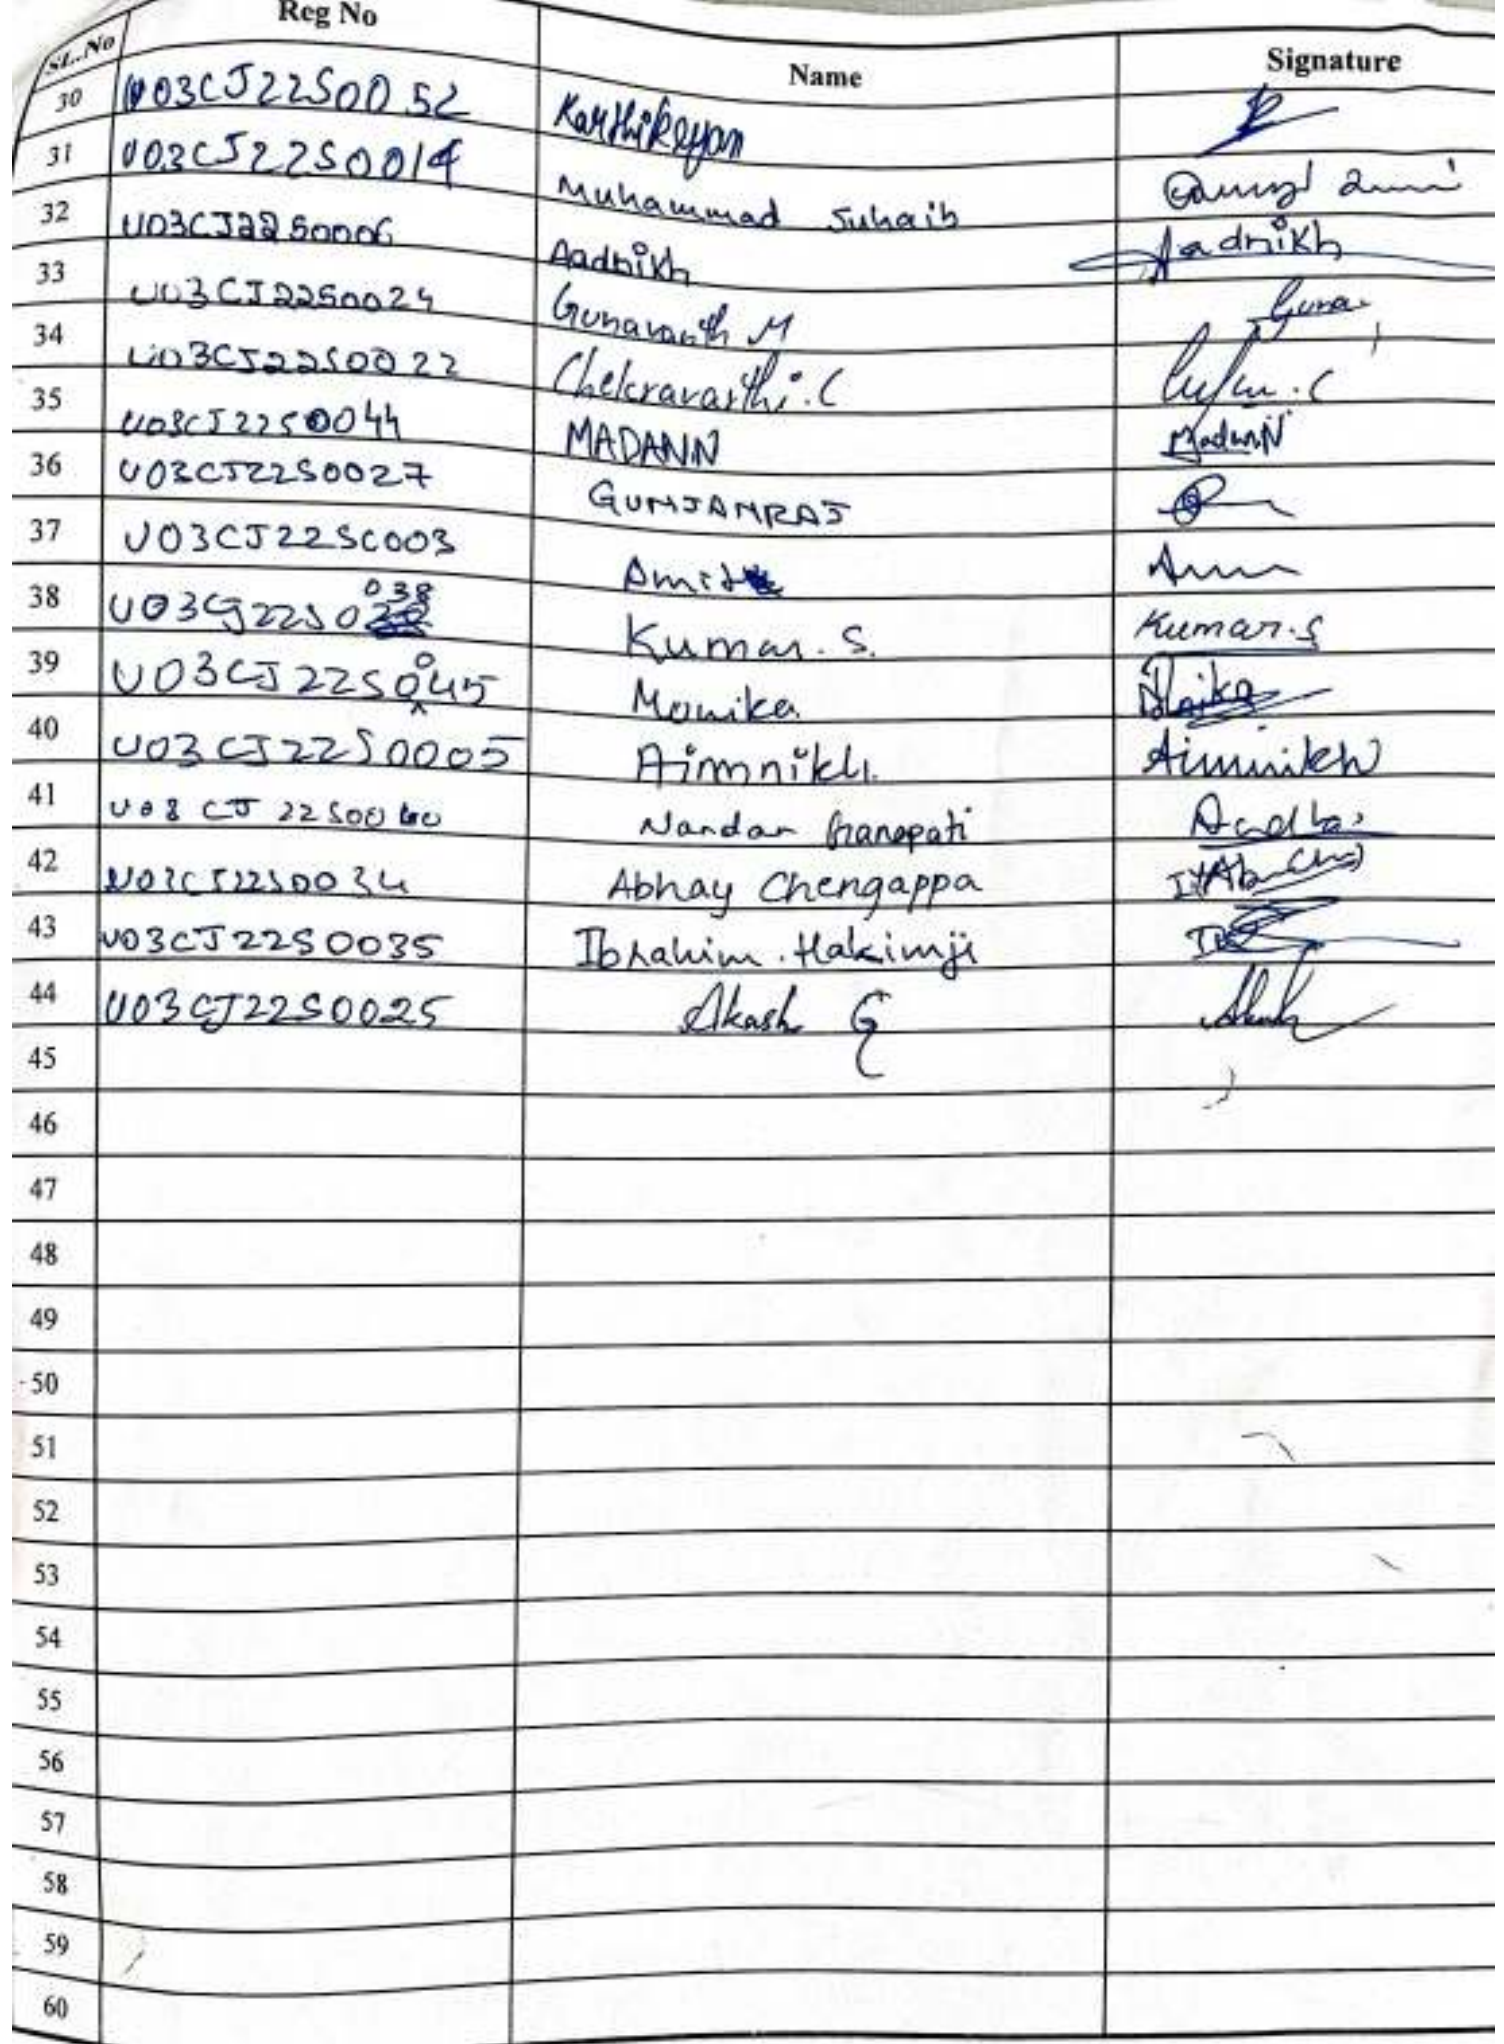 SL.No Reg No Name Signature
30 U03CJ22S0052 Karthikeyan
31 U03CJ22S0014 Muhammad Suhaib
32 U03CJ22S0006 Aadnikh Aadnikh
33 U03CJ22S0024 Gunavanth M Guna
34 U03CJ22S0022 Chekravarthi.C
35 U03CJ22S0044 MADANN MadanN
36 U03CJ22S0027 GUNJANRAJ
37 U03CJ22S0003 Amit
38 U03CJ22S0038 Kumar.S. Kumar.S
39 U03CJ22S0045 Monika
40 U03CJ22S0005 Aimnikh Aimnikh
41 U03CJ22S0060 Nandan Ganapati
42 U03CJ22S0034 Abhay Chengappa
43 U03CJ22S0035 Ibrahim.Hakimji
44 U03CJ22S0025 Akash G Akash
45
46
47
48
49
50
51
52
53
54
55
56
57
58
59
60